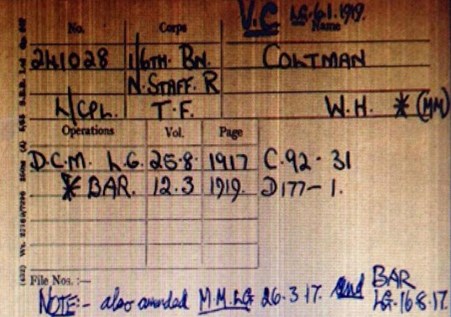 V.C LG.6.1.1919.
No. Corps Name
241028 1/6TH. BN. COLTMAN
N. STAFF. R
L/CPL. T.F. W.H. * (MM)
Operations Vol. Page
D.C.M. L.G. 25.8. 1917 C.92 - 31
* BAR. 12.3 1919. D177 - 1.
File Nos. :—
NOTE:- also awarded M.M. LG 26.3.17. and BAR
LG.16.8.17.